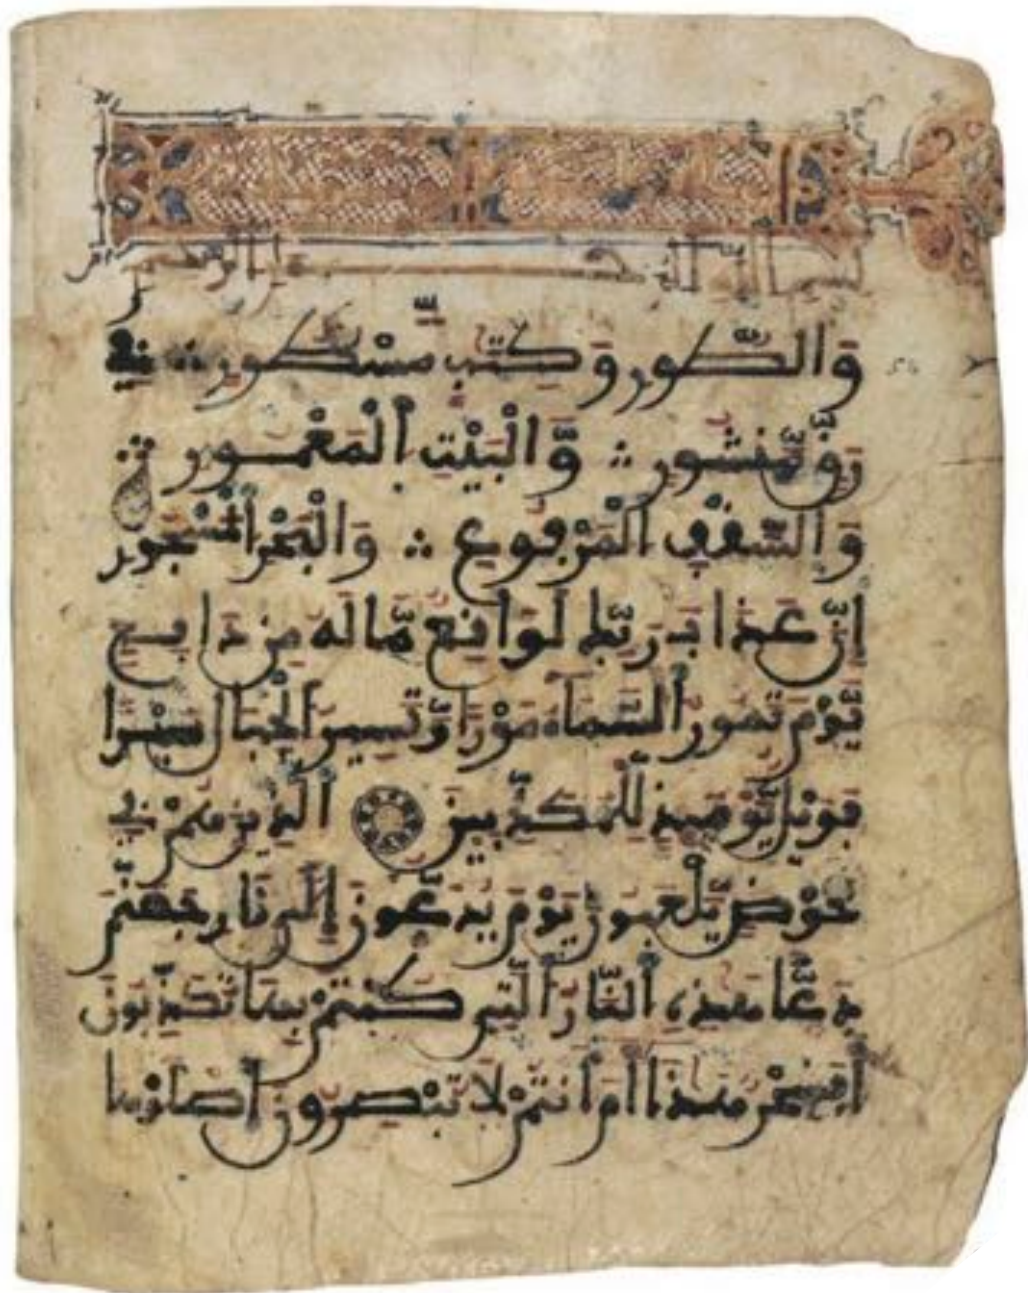 بسم الله الرحمن الرحيم
وَالطُّورِ وَكِتَٰبٍ مَّسْطُورٍ فِے
رَقٍّ مَّنشُورٍ وَالْبَيْتِ الْمَعْمُورِ
وَالسَّقْفِ الْمَرْفُوعِ وَالْبَحْرِ الْمَسْجُورِ
إِنَّ عَذَابَ رَبِّكَ لَوَٰقِعٌ مَّا لَهُ مِن دَافِعٍ
يَوْمَ تَمُورُ السَّمَآءُ مَوْرًا وَتَسِيرُ الْجِبَالُ سَيْرًا
فَوَيْلٌ يَوْمَئِذٍ لِّلْمُكَذِّبِينَ الَّذِينَ هُمْ فِے
خَوْضٍ يَلْعَبُونَ يَوْمَ يُدَعُّونَ إِلَىٰ نَارِ جَهَنَّمَ
دَعًّا هَٰذِهِ النَّارُ الَّتِے كُنتُمْ بِهَا تُكَذِّبُونَ
أَفَسِحْرٌ هَٰذَا أَمْ أَنتُمْ لَا تُبْصِرُونَ اصْلَوْهَا